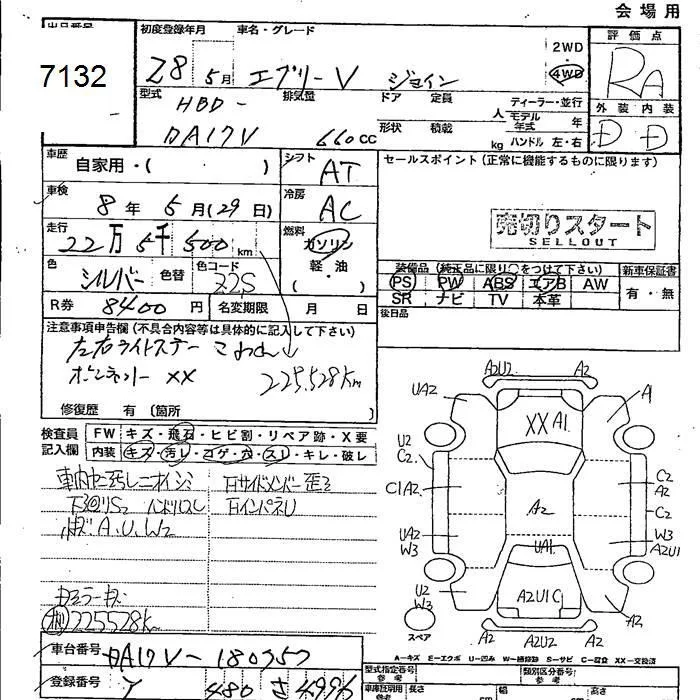 会場用
出品番号
初度登録年月
車名・グレード
評価点
7132
28
5月
エブリーV
ジョイン
2WD
4WD
RA
型式
排気量
ドア
定員
ディーラー・並行
外装
内装
HBD-
人
モデル年式
年
DA17V
660cc
形状
積載
kg
ハンドル 左・右
D
D
車歴
自家用・( )
シフト
AT
セールスポイント(正常に機能するものに限ります)
車検
8年5月(29日)
冷房
AC
売切りスタート
SELLOUT
走行
22万5千500km
燃料
ガソリン
軽・油
( )
色
シルバー
色替
色コード
Z2S
装備品(純正品に限り○をつけて下さい)
新車保証書
PS
PW
ABS
エアB
AW
有・無
SR
ナビ
TV
本革
R券
8400円
名変期限
月
日
後日品
注意事項申告欄(不具合内容等は具体的に記入して下さい)
XX
225,528km
修復歴 有 〔箇所 〕
検査員記入欄
FW
キズ・飛石・ヒビ割・リペア跡・X要
内装
キズ・汚レ・コゲ・穴・スレ・キレ・破レ
A.U.W2
225528k
車台番号
DA17V-180757
登録番号
480
4996
A2U2
A2
UA2
XXA1
A1
U2
C2
C2
A2
C1A2
A2
C2
UA2
W3
UA1
W3
A2U1
U2
W3
A2U1C
A2
スペア
A2
A2U2
A2
A-キズ E-エクボ U-凹み W-補修跡 S-サビ C-腐食 XX-交換済
型式指定番号
参考
類別区分番号
参考
車庫証明用
参考
長さ
幅
高さ